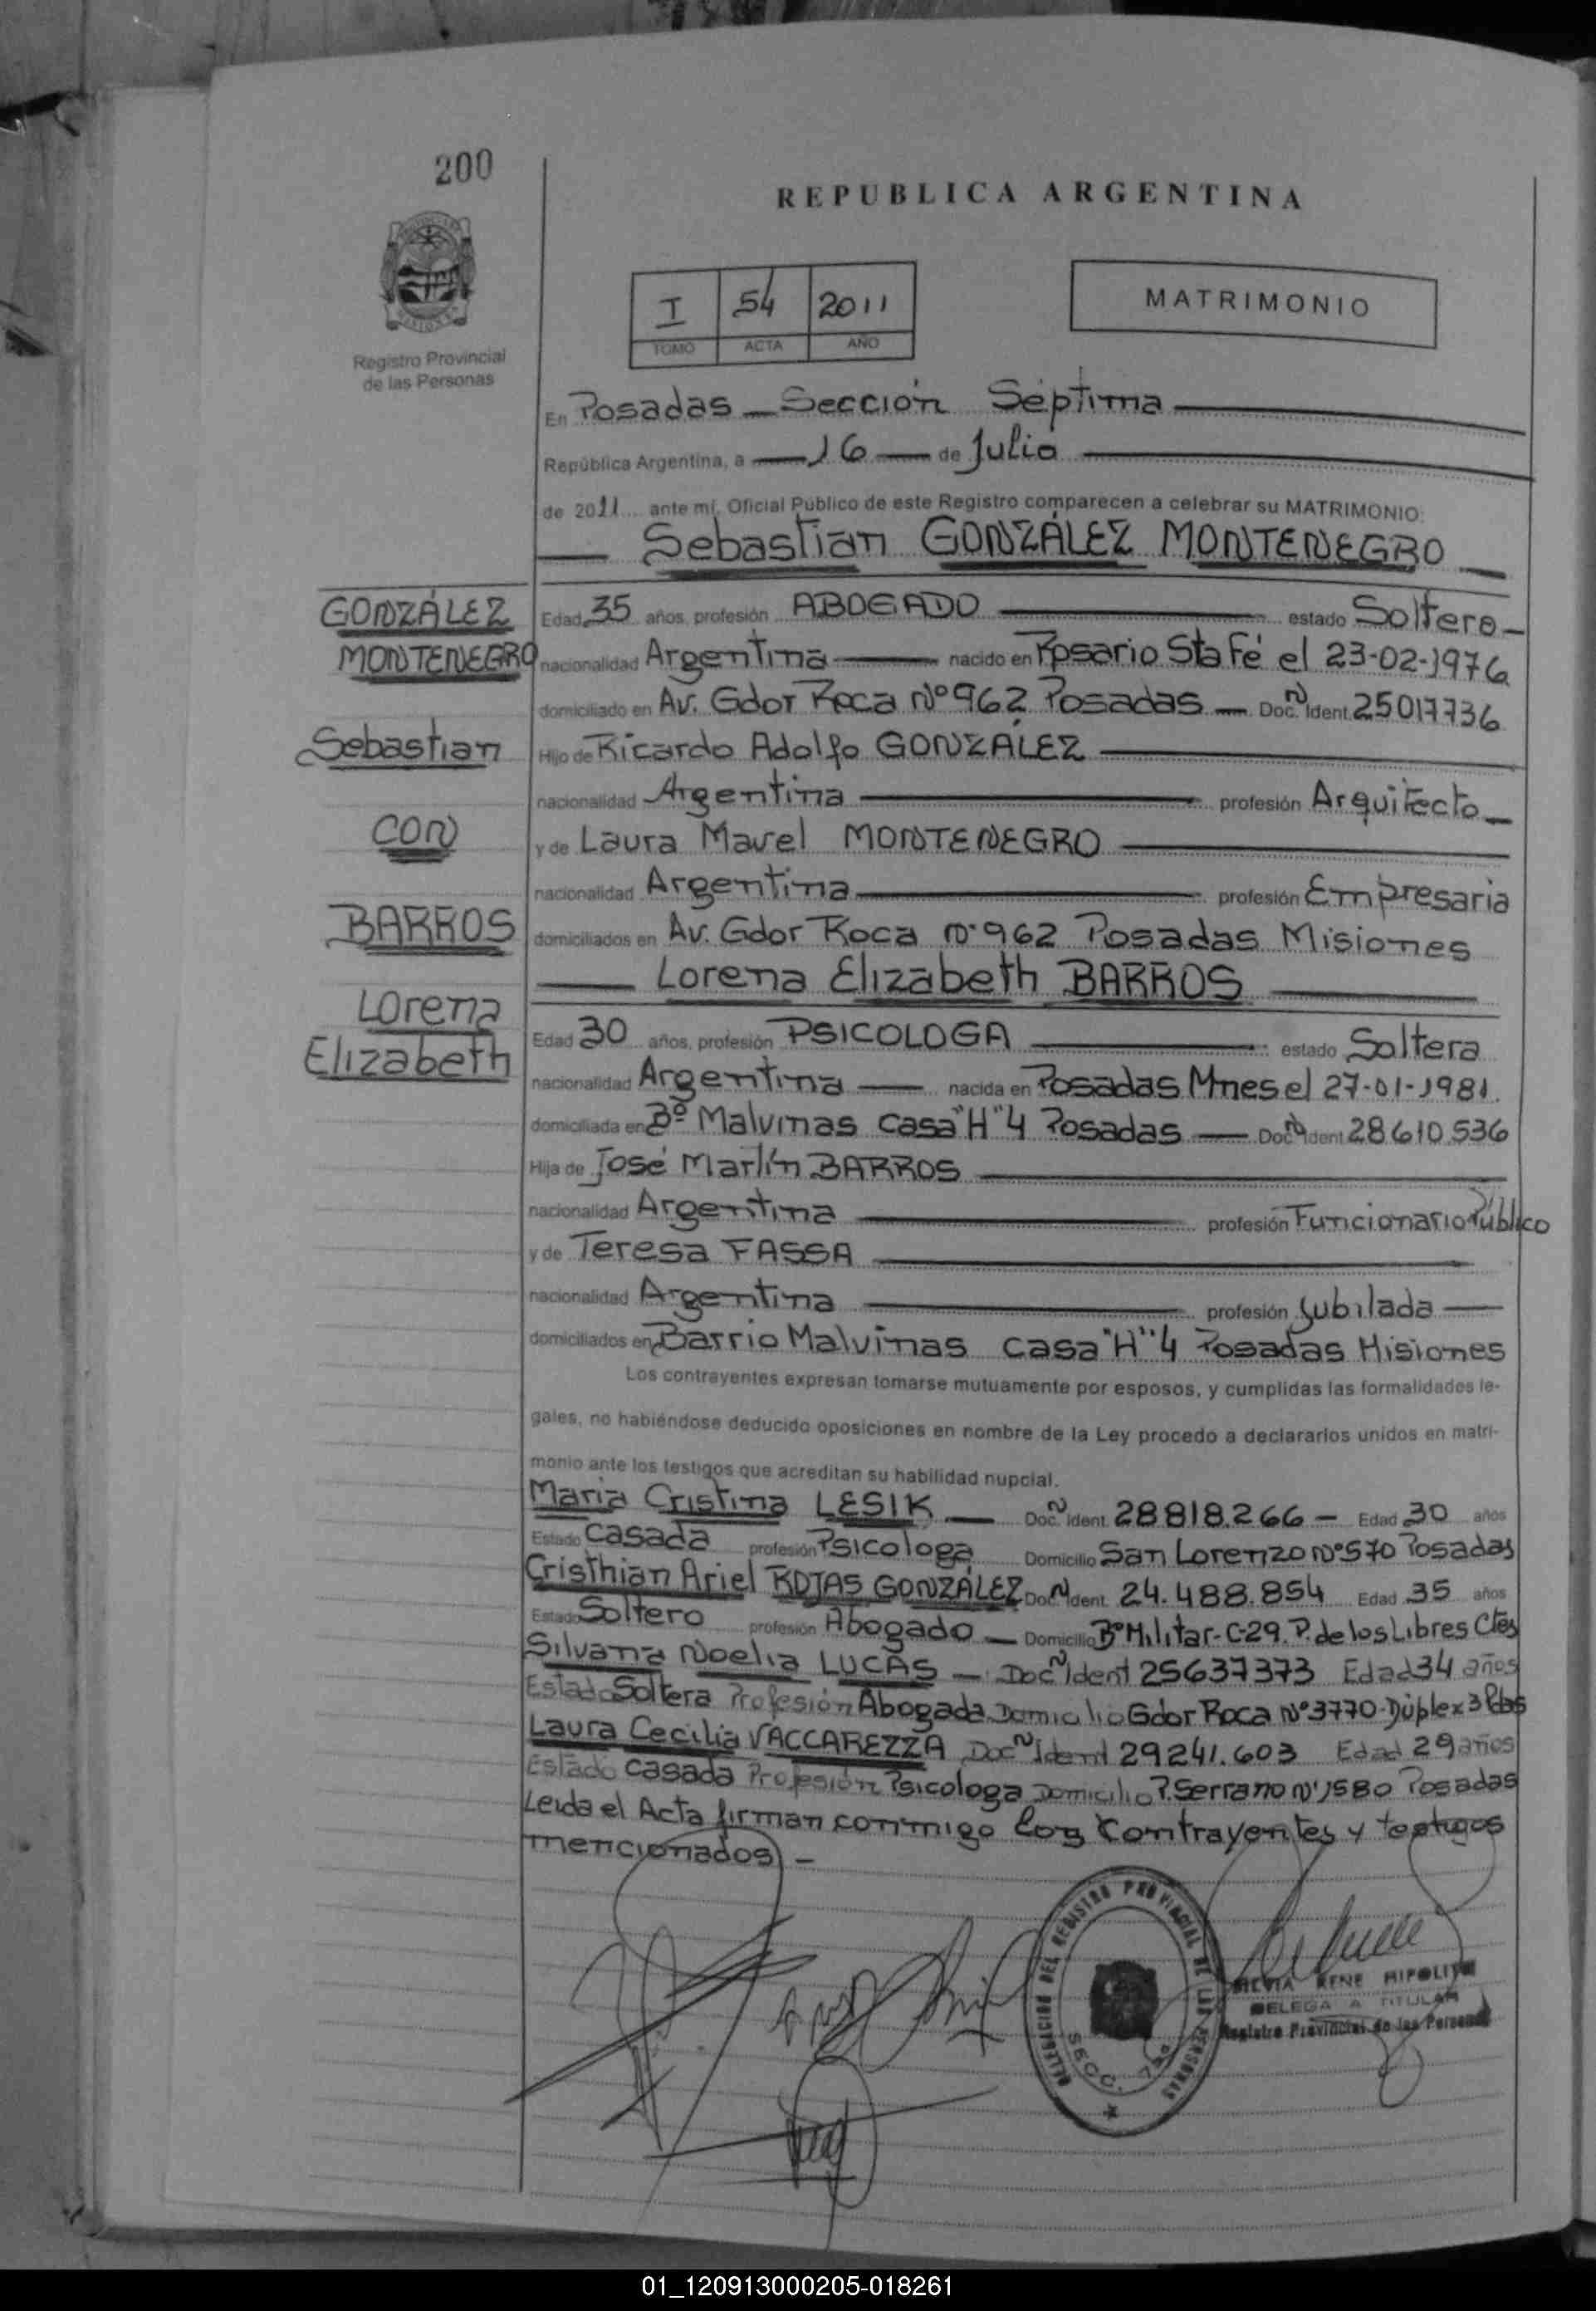 200
REPUBLICA ARGENTINA
I 54 2011
TOMO ACTA AÑO
MATRIMONIO
Registro Provincial
de las Personas
En Posadas - Sección Séptima
República Argentina, a 16 de Julio
de 2011 ante mí, Oficial Público de este Registro comparecen a celebrar su MATRIMONIO:
Sebastian GONZÁLEZ MONTENEGRO
GONZÁLEZ
MONTENEGRO
Sebastian
CON
BARROS
Lorena
Elizabeth
Edad 35 años, profesión ABOGADO estado Soltero
nacionalidad Argentina nacido en Rosario Sta Fé el 23-02-1976
domiciliado en Av. Gdor Roca Nº 962 Posadas - Doc. N Ident. 25017736
Hijo de Ricardo Adolfo GONZALEZ
nacionalidad Argentina profesión Arquitecto
y de Laura Mavel MONTENEGRO
nacionalidad Argentina profesión Empresaria
domiciliados en Av. Gdor Roca Nº 962 Posadas Misiones
Lorena Elizabeth BARROS
Edad 30 años, profesión PSICOLOGA estado Soltera
nacionalidad Argentina nacida en Posadas Mnes el 27-01-1981.
domiciliada en Bº Malvinas casa "H" 4 Posadas - Doc. N Ident 28610.536
Hija de José Martín BARROS
nacionalidad Argentina profesión Funcionario Público
y de Teresa FASSA
nacionalidad Argentina profesión Jubilada
domiciliados en Barrio Malvinas casa "H" 4 Posadas Misiones
Los contrayentes expresan tomarse mutuamente por esposos, y cumplidas las formalidades le-
gales, no habiéndose deducido oposiciones en nombre de la Ley procedo a declararlos unidos en matri-
monio ante los testigos que acreditan su habilidad nupcial.
Maria Cristina LESIK - Doc. N Ident. 28818.266 - Edad 30 años
Estado Casada profesión Psicologa Domicilio San Lorenzo Nº 570 Posadas
Cristhian Ariel ROJAS GONZÁLEZ Doc. N Ident. 24.488.854 Edad 35 años
Estado Soltero profesión Abogado - Domicilio Bº Militar-C-29. P. de los Libres Ctes
Silvana Noelia LUCAS - Doc N Ident 25637373 Edad 34 años
Estado Soltera Profesión Abogada Domicilio Gdor Roca Nº 3770-Dúplex 3 Pdas
Laura Cecilia VACCAREZZA Doc N Ident 29241.603 Edad 29 años
Estado casada Profesión Psicologa Domicilio P. Serrano Nº 1580 Posadas
Leida el Acta firman conmigo los Contrayentes y testigos
mencionados -
DELEGACION DEL REGISTRO PROVINCIAL DE LAS PERSONAS
SECC. 7ma
SILVIA RENE HIPOLITO
DELEGADA TITULAR
Registro Provincial de las Personas
01_120913000205-018261